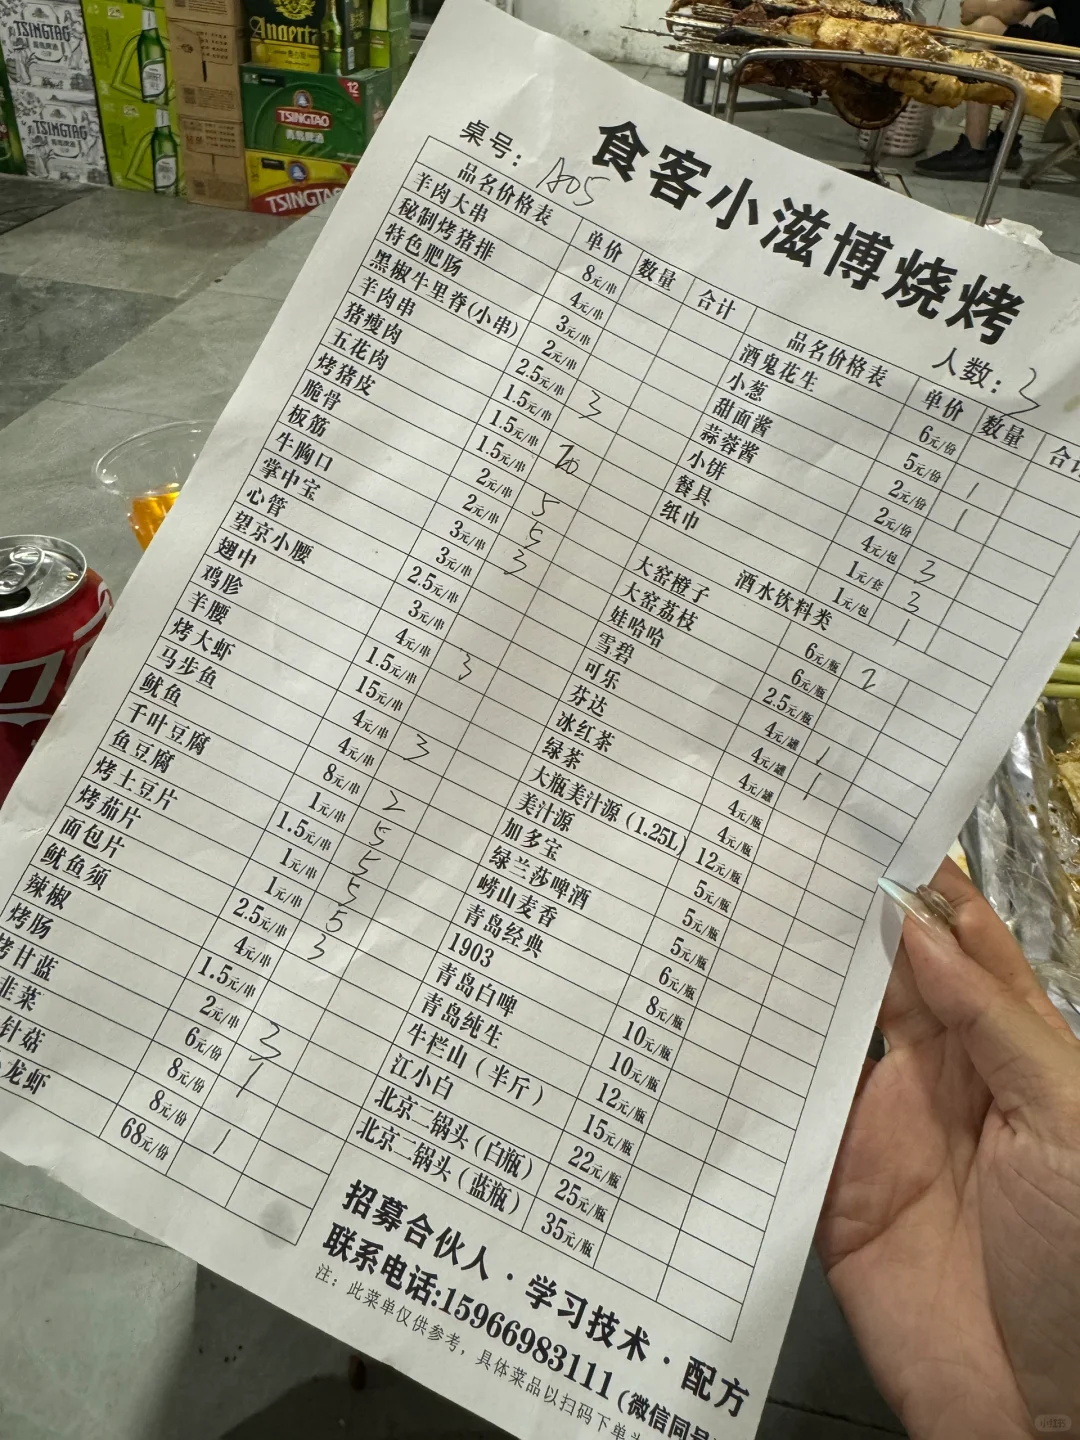 食客小滋博烧烤
桌号：A05
人数：3
品名价格表 单价 数量 合计
羊肉大串 8元/串
秘制烤猪排 4元/串
特色肥肠 3元/串
黑椒牛里脊(小串) 2元/串
羊肉串 2.5元/串 3
猪瘦肉 1.5元/串
五花肉 1.5元/串 20
烤猪皮 1.5元/串
脆骨 2元/串 5
板筋 2元/串 5
牛胸口 3元/串 3
掌中宝 3元/串
心管 2.5元/串
望京小腰 3元/串
翅中 4元/串 3
鸡胗 1.5元/串
羊腰 15元/串
烤大虾 4元/串 3
马步鱼 4元/串
鱿鱼 8元/串 2
千叶豆腐 1元/串 5
鱼豆腐 1.5元/串 5
烤土豆片 1元/串 5
烤茄片 1元/串 5
面包片 2.5元/串 3
鱿鱼须 4元/串
辣椒 1.5元/串
烤肠 2元/串 3
烤甘蓝 6元/份 1
韭菜 8元/份
针菇 8元/份 1
龙虾 68元/份
品名价格表 单价 数量 合计
酒鬼花生 6元/份
小葱 5元/份 1
甜面酱 2元/份 1
蒜蓉酱 2元/份
小饼 4元/包 3
餐具 1元/套 3
纸巾 1元/包 1
酒水饮料类
大窑橙子 6元/瓶 2
大窑荔枝 6元/瓶
娃哈哈 2.5元/瓶
雪碧 4元/罐 1
可乐 4元/罐 1
芬达 4元/罐
冰红茶 4元/瓶
绿茶 4元/瓶
大瓶美汁源（1.25L） 12元/瓶
美汁源 5元/瓶
加多宝 5元/瓶
绿兰莎啤酒 5元/瓶
崂山麦香 6元/瓶
青岛经典 8元/瓶
1903 10元/瓶
青岛白啤 10元/瓶
青岛纯生 12元/瓶
牛栏山（半斤） 15元/瓶
江小白 22元/瓶
北京二锅头（白瓶） 25元/瓶
北京二锅头（蓝瓶） 35元/瓶
招募合伙人·学习技术·配方
联系电话:15966983111(微信同号
注：此菜单仅供参考，具体菜品以扫码下单
TSINGTAO
TSINGTAO
TSINGTAO
青岛啤酒
12
TSINGTAO
小红书